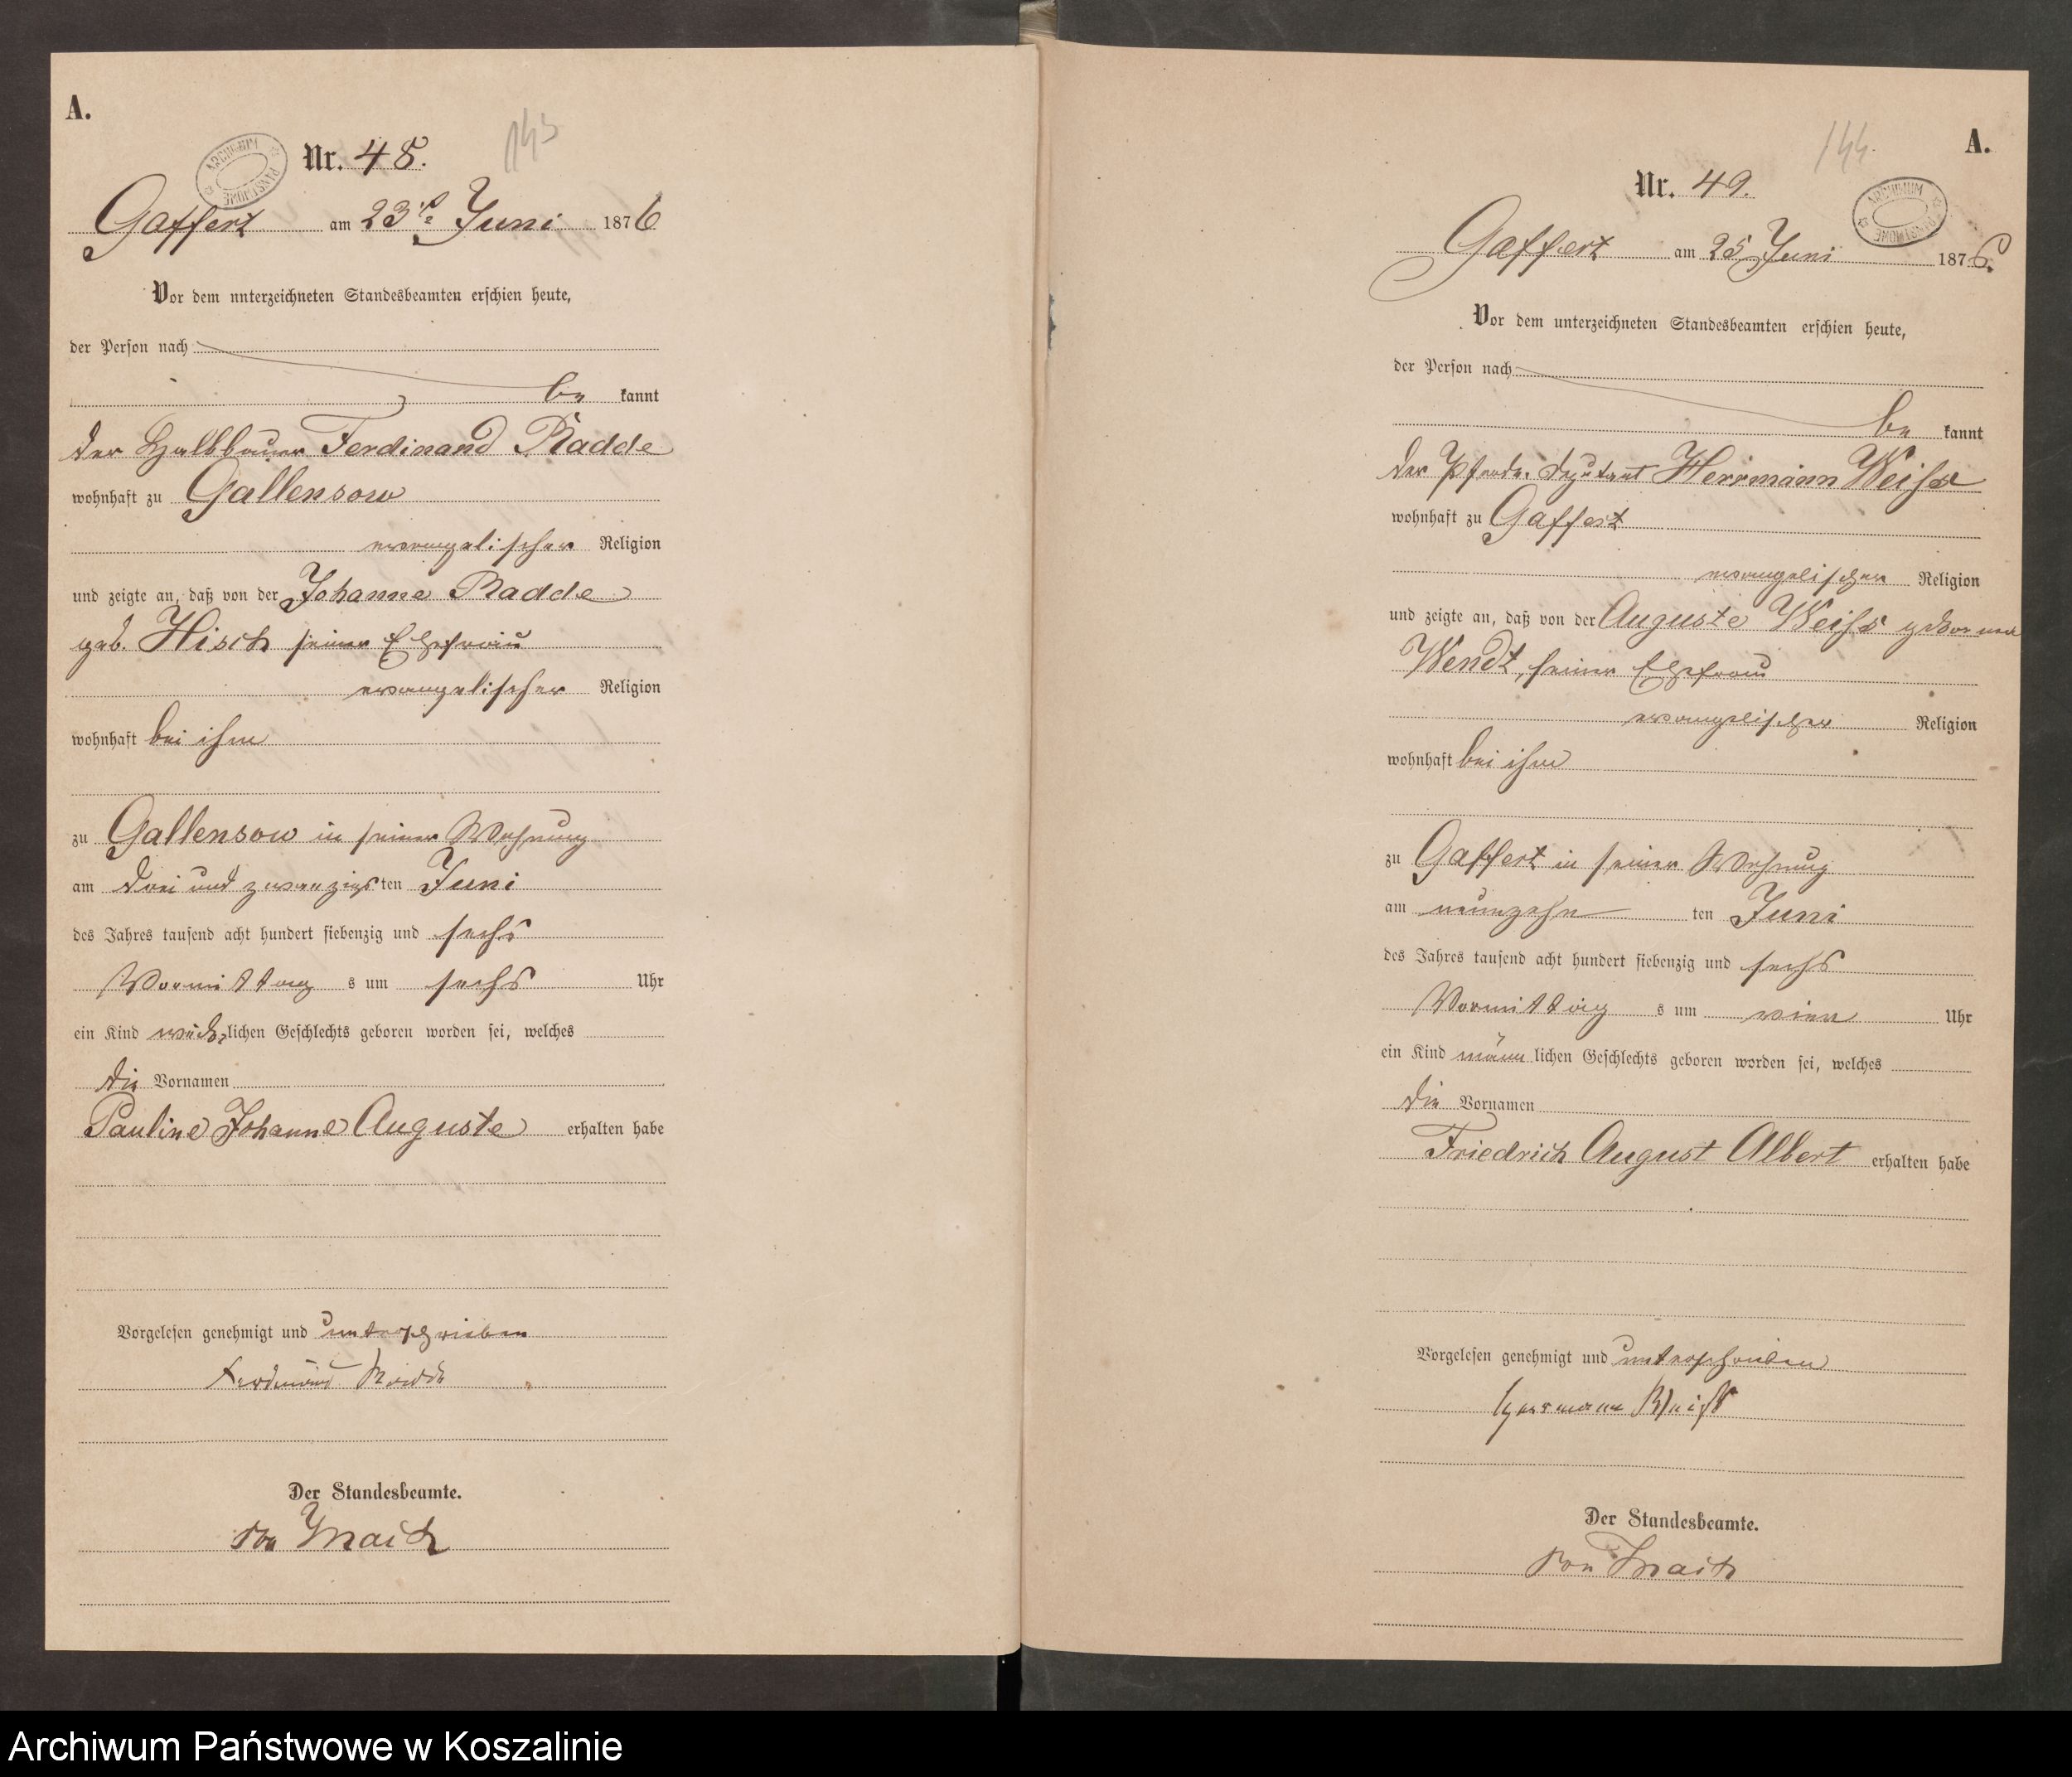 A.
143
ARCHIWUM PAŃSTWOWE
Nr. 48.
Gaffert am 23te Juni 1876
Vor dem unterzeichneten Standesbeamten erschien heute,
der Person nach
be kannt
der Halbbauer Ferdinand Radde
wohnhaft zu Gallensow
evangelischer Religion
und zeigte an, daß von der Johanne Radde
geb. Hisch seiner Ehefrau
evangelischer Religion
wohnhaft bei ihm
zu Gallensow in seiner Wohnung
am drei und zwanzigsten Juni
des Jahres tausend acht hundert siebenzig und sechs
Vormittag s um sechs Uhr
ein Kind weiblichen Geschlechts geboren worden sei, welches
die Vornamen
Pauline Johanne Auguste erhalten habe
Vorgelesen genehmigt und unterschrieben
Ferdinand Radde
Der Standesbeamte.
von
A.
144
Nr. 49.
ARCHIWUM PAŃSTWOWE
Gaffert am 25 Juni 1876.
Vor dem unterzeichneten Standesbeamten erschien heute,
der Person nach
be kannt
der Pferde. Deputant Herrmann Weiss
wohnhaft zu Gaffert
evangelischer Religion
und zeigte an, daß von der Auguste Weiss geborene
Wendt, seiner Ehefrau
evangelischer Religion
wohnhaft bei ihm
zu Gaffert in seiner Wohnung
am neunzehn ten Juni
des Jahres tausend acht hundert siebenzig und sechs
Vormittag s um vier Uhr
ein Kind männ lichen Geschlechts geboren worden sei, welches
die Vornamen
Friedrich August Albert erhalten habe
Vorgelesen genehmigt und unterschrieben
Herrmann Weiß
Der Standesbeamte.
von
Archiwum Państwowe w Koszalinie